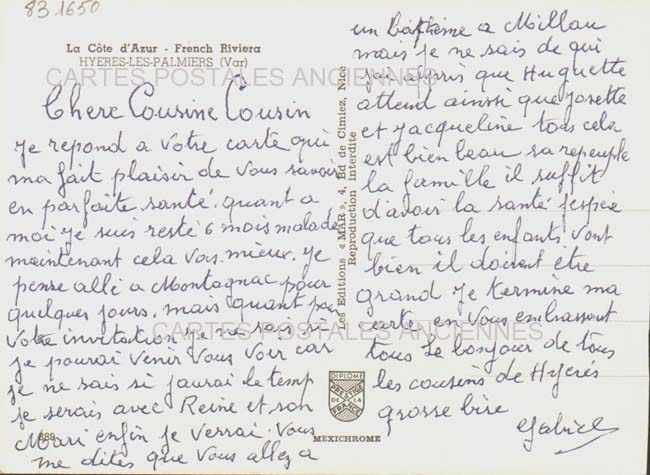 83 1650
La Côte d'Azur - French Riviera
HYERES-LES-PALMIERS (Var)
CARTES POSTALES ANCIENNES
Chere Cousine Cousin
Je repond a votre carte qui
ma fait plaisir de vous savoir
en parfaite santé. quant a
moi je suis resté 6 mois malade
maintenant cela vas mieux. je
pense allé a Montagnac pour
quelques jours, mais quant par
votre invitation je ne sais si
je pourai venir vous voir car
je ne sais si jaurai le temp
je serais avec Reine et son
Mari enfin je verrai. Vous
me dites que vous allez a
un baptême a Millau
mais je ne sais de qui
jai appris que Huguette
attend ainsi que Josette
et Jacqueline tous cela
est bien beau sa repeuple
la famille il suffit
d'avoir la santé j'espère
que tous les enfants vont
bien il doivent être
grand Je termine ma
carte en vous embrassant
tous Le bonjour de tous
les cousins de Hyeres
grosse bise
Gabriel
Les Editions « MAR », 4, Bd de Cimiez, Nice
Reproduction interdite
CARTES POSTALES ANCIENNES
DIPLOME
PRESTIGE
DE LA
FRANCE
MEXICHROME
889